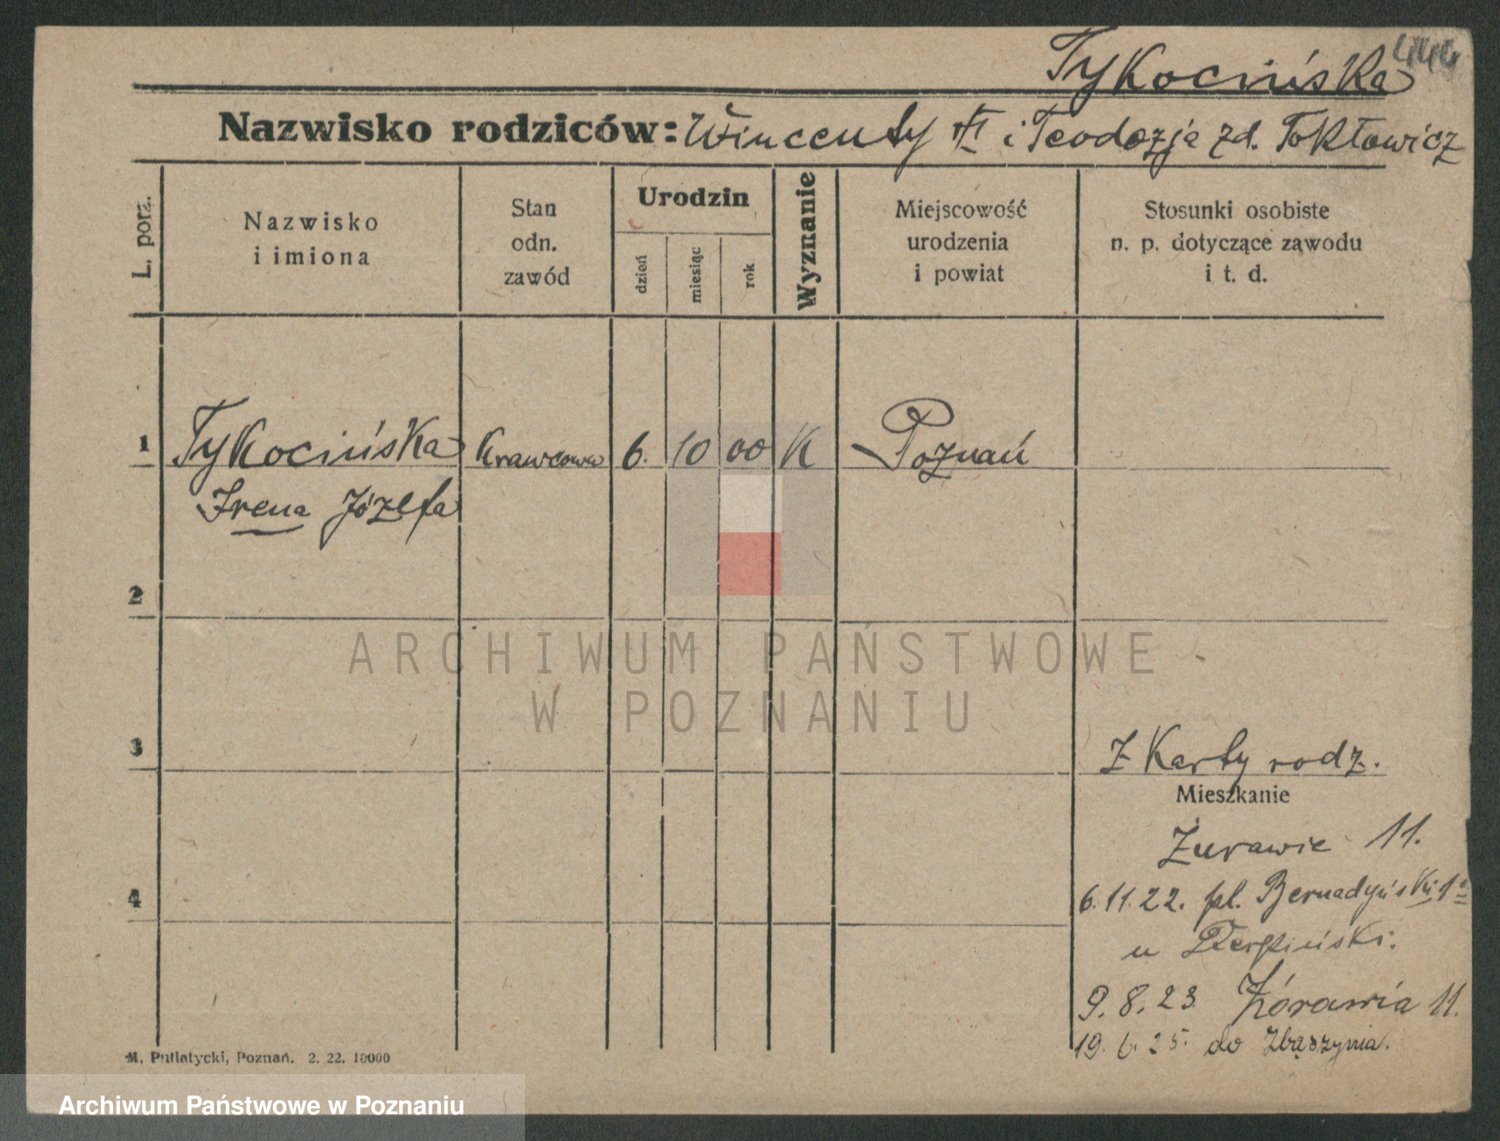 444
Tykocińska
Nazwisko rodziców: Wincenty i Teodozja zd. Tokłowicz
L. porz.
Nazwisko
i imiona
Stan
odn.
zawód
Urodzin
dzień
miesiąc
rok
Wyznanie
Miejscowość
urodzenia
i powiat
Stosunki osobiste
n. p. dotyczące zawodu
i t. d.
1 Tykocińska Krawcowa 6. 10 00 K Poznań
Irena Józefa
2
3
Z Karty rodz.
Mieszkanie
Żurawie 11.
4
6.11.22. pl. Bernadyński 1a
u
9.8.23 Żórawia 11.
19.6.25. do Zbąszynia.
M. Putiatycki, Poznań. 2. 22. 10000
ARCHIWUM PAŃSTWOWE
W POZNANIU
Archiwum Państwowe w Poznaniu